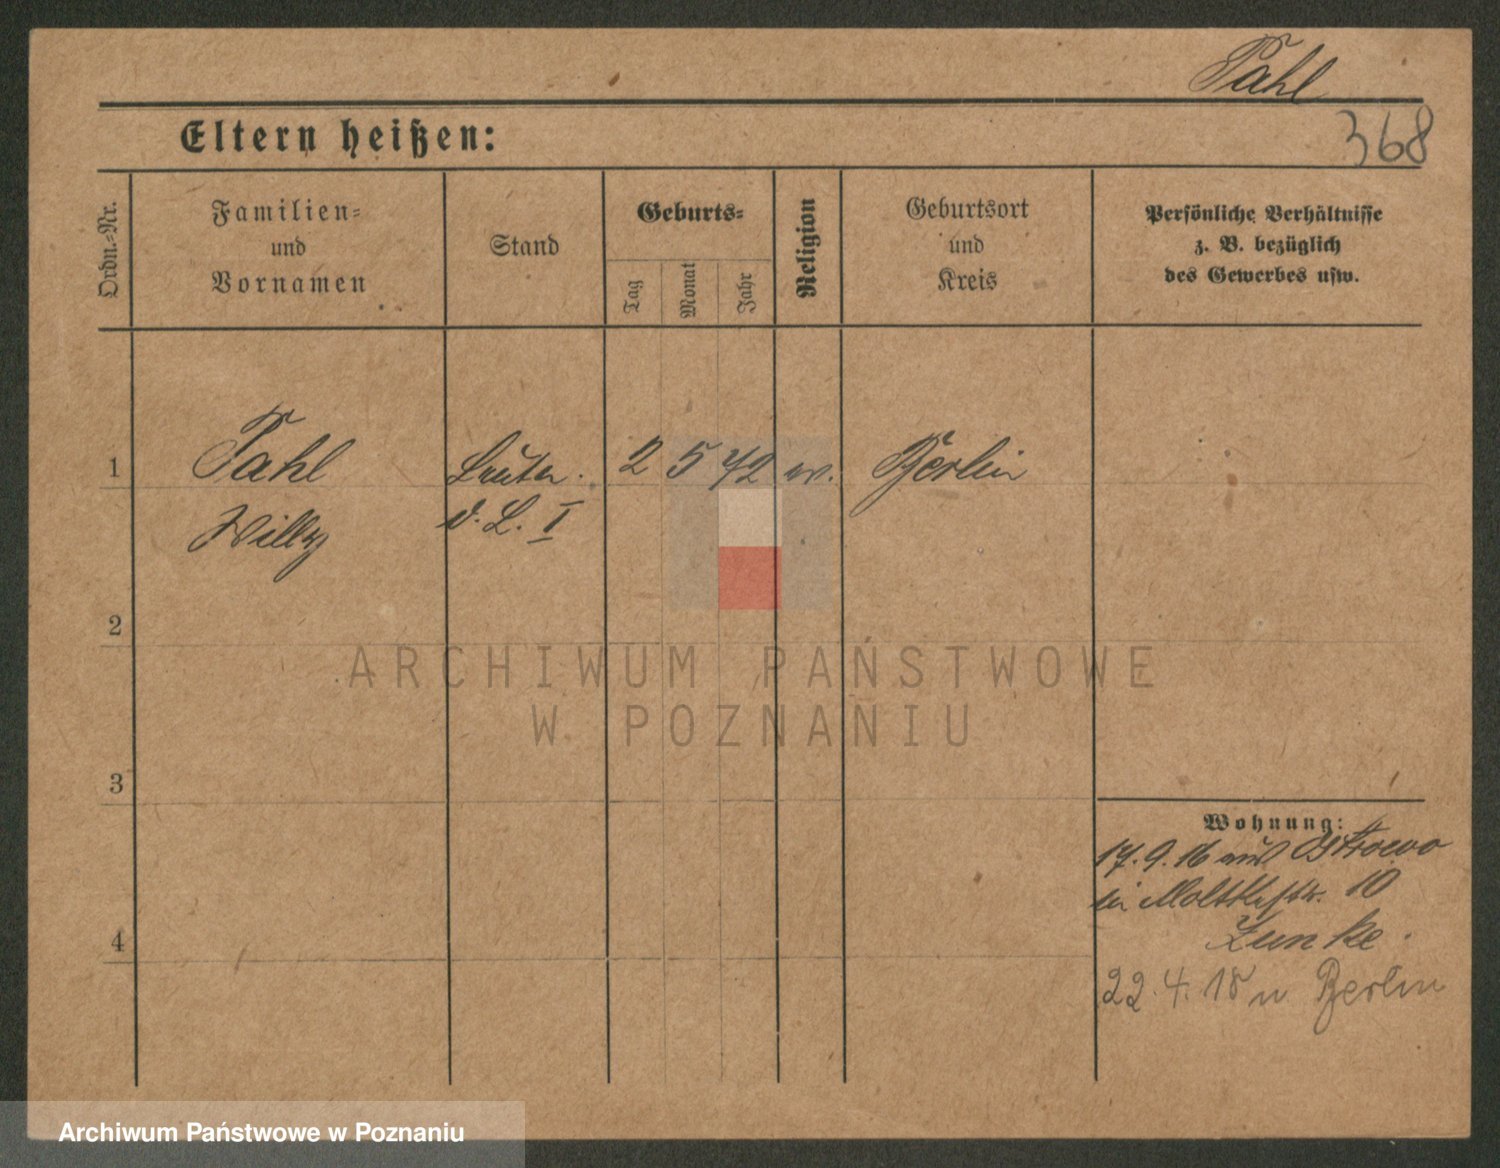 Pahl
368
Eltern heißen:
Ordn.-Nr.
Familien-
und
Vornamen
Stand
Geburts-
Tag
Monat
Jahr
Religion
Geburtsort
und
Kreis
Persönliche Verhältnisse
z. B. bezüglich
des Gewerbes usw.
1
Pahl
Willy
d. L. I
2 5 72
Berlin
2
ARCHIWUM PAŃSTWOWE
W POZNANIU
3
Wohnung:
17. 9. 16 aus Ostrowo
bei Moltkestr. 10
Zunke.
4
22. 4. 18 n Berlin
Archiwum Państwowe w Poznaniu